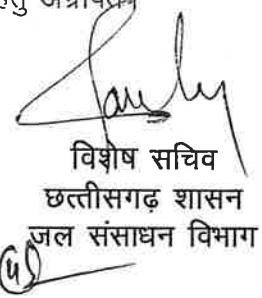 विशेष सचिव
छत्तीसगढ़ शासन
जल संसाधन विभाग